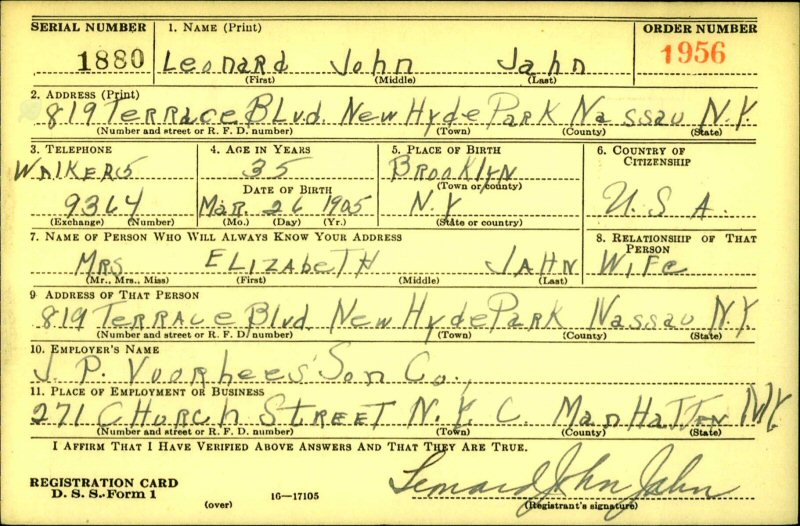 SERIAL NUMBER 1. NAME (Print) ORDER NUMBER
1880 Leonard John Jahn 1956
(First) (Middle) (Last)
2. ADDRESS (Print)
819 Terrace Blvd. New Hyde Park Nassau N.Y.
(Number and street or R. F. D. number) (Town) (County) (State)
3. TELEPHONE 4. AGE IN YEARS 5. PLACE OF BIRTH 6. COUNTRY OF CITIZENSHIP
WALKER 5 35 BROOKLYN
DATE OF BIRTH (Town or county)
9364 Mar. 26 1905 N.Y. U.S.A.
(Exchange) (Number) (Mo.) (Day) (Yr.) (State or country)
7. NAME OF PERSON WHO WILL ALWAYS KNOW YOUR ADDRESS 8. RELATIONSHIP OF THAT PERSON
MRS ELIZABETH JAHN WIFE
(Mr., Mrs., Miss) (First) (Middle) (Last)
9. ADDRESS OF THAT PERSON
819 TERRACE Blvd. New Hyde Park Nassau N.Y.
(Number and street or R. F. D. number) (Town) (County) (State)
10. EMPLOYER'S NAME
J. P. Voorhees' Son Co.,
11. PLACE OF EMPLOYMENT OR BUSINESS
271 CHURCH STREET N.Y.C. ManHaTTen N.Y.
(Number and street or R. F. D. number) (Town) (County) (State)
I AFFIRM THAT I HAVE VERIFIED ABOVE ANSWERS AND THAT THEY ARE TRUE.
REGISTRATION CARD Leonard John Jahn
D. S. S. Form 1 (over) 16—17105 (Registrant's signature)